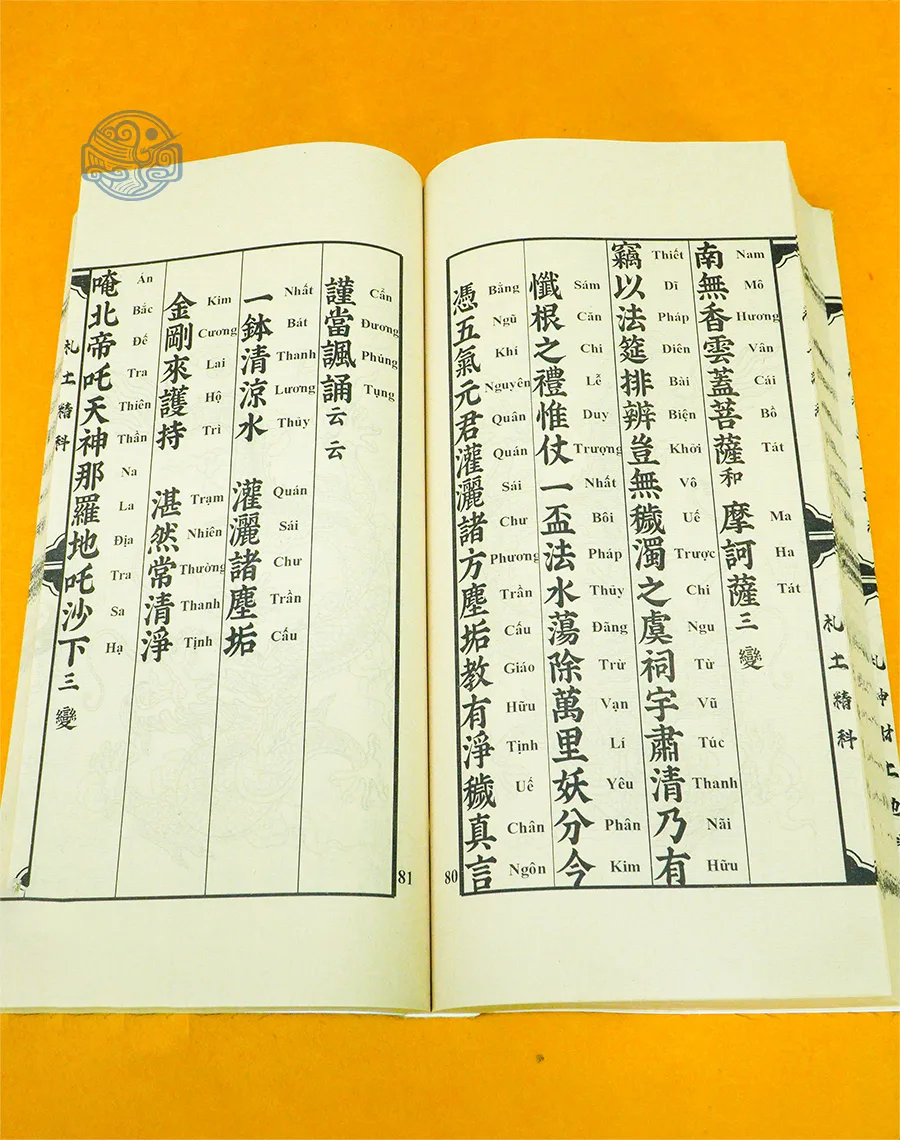 南無香雲蓋菩薩和 摩訶薩三變
Nam Mô Hương Vân Cái Bồ Tát Ma Ha Tát
竊以法筵排辨豈無穢濁之虞祠宇肅清乃有
Thiết Dĩ Pháp Diên Bài Biện Khởi Vô Uế Trược Chi Ngu Từ Vũ Túc Thanh Nãi Hữu
懺根之禮惟仗一盃法水蕩除萬里妖分今
Sám Căn Chi Lễ Duy Trượng Nhất Bôi Pháp Thủy Đãng Trừ Vạn Lí Yêu Phân Kim
憑五氣元君灌灑諸方塵垢教有淨穢真言
Bằng Ngũ Khí Nguyên Quân Quán Sái Chư Phương Trần Cấu Giáo Hữu Tịnh Uế Chân Ngôn
80
札土精科
謹當諷誦云云
Cẩn Đương Phúng Tụng
一鉢清涼水 灌灑諸塵垢
Nhất Bát Thanh Lương Thủy Quán Sái Chư Trần Cấu
金剛來護持 湛然常清淨
Kim Cương Lai Hộ Trì Trạm Nhiên Thường Thanh Tịnh
唵北帝吒天神那羅地吒沙下三變
Án Bắc Đế Tra Thiên Thần Na La Địa Tra Sa Hạ
81
札土精科